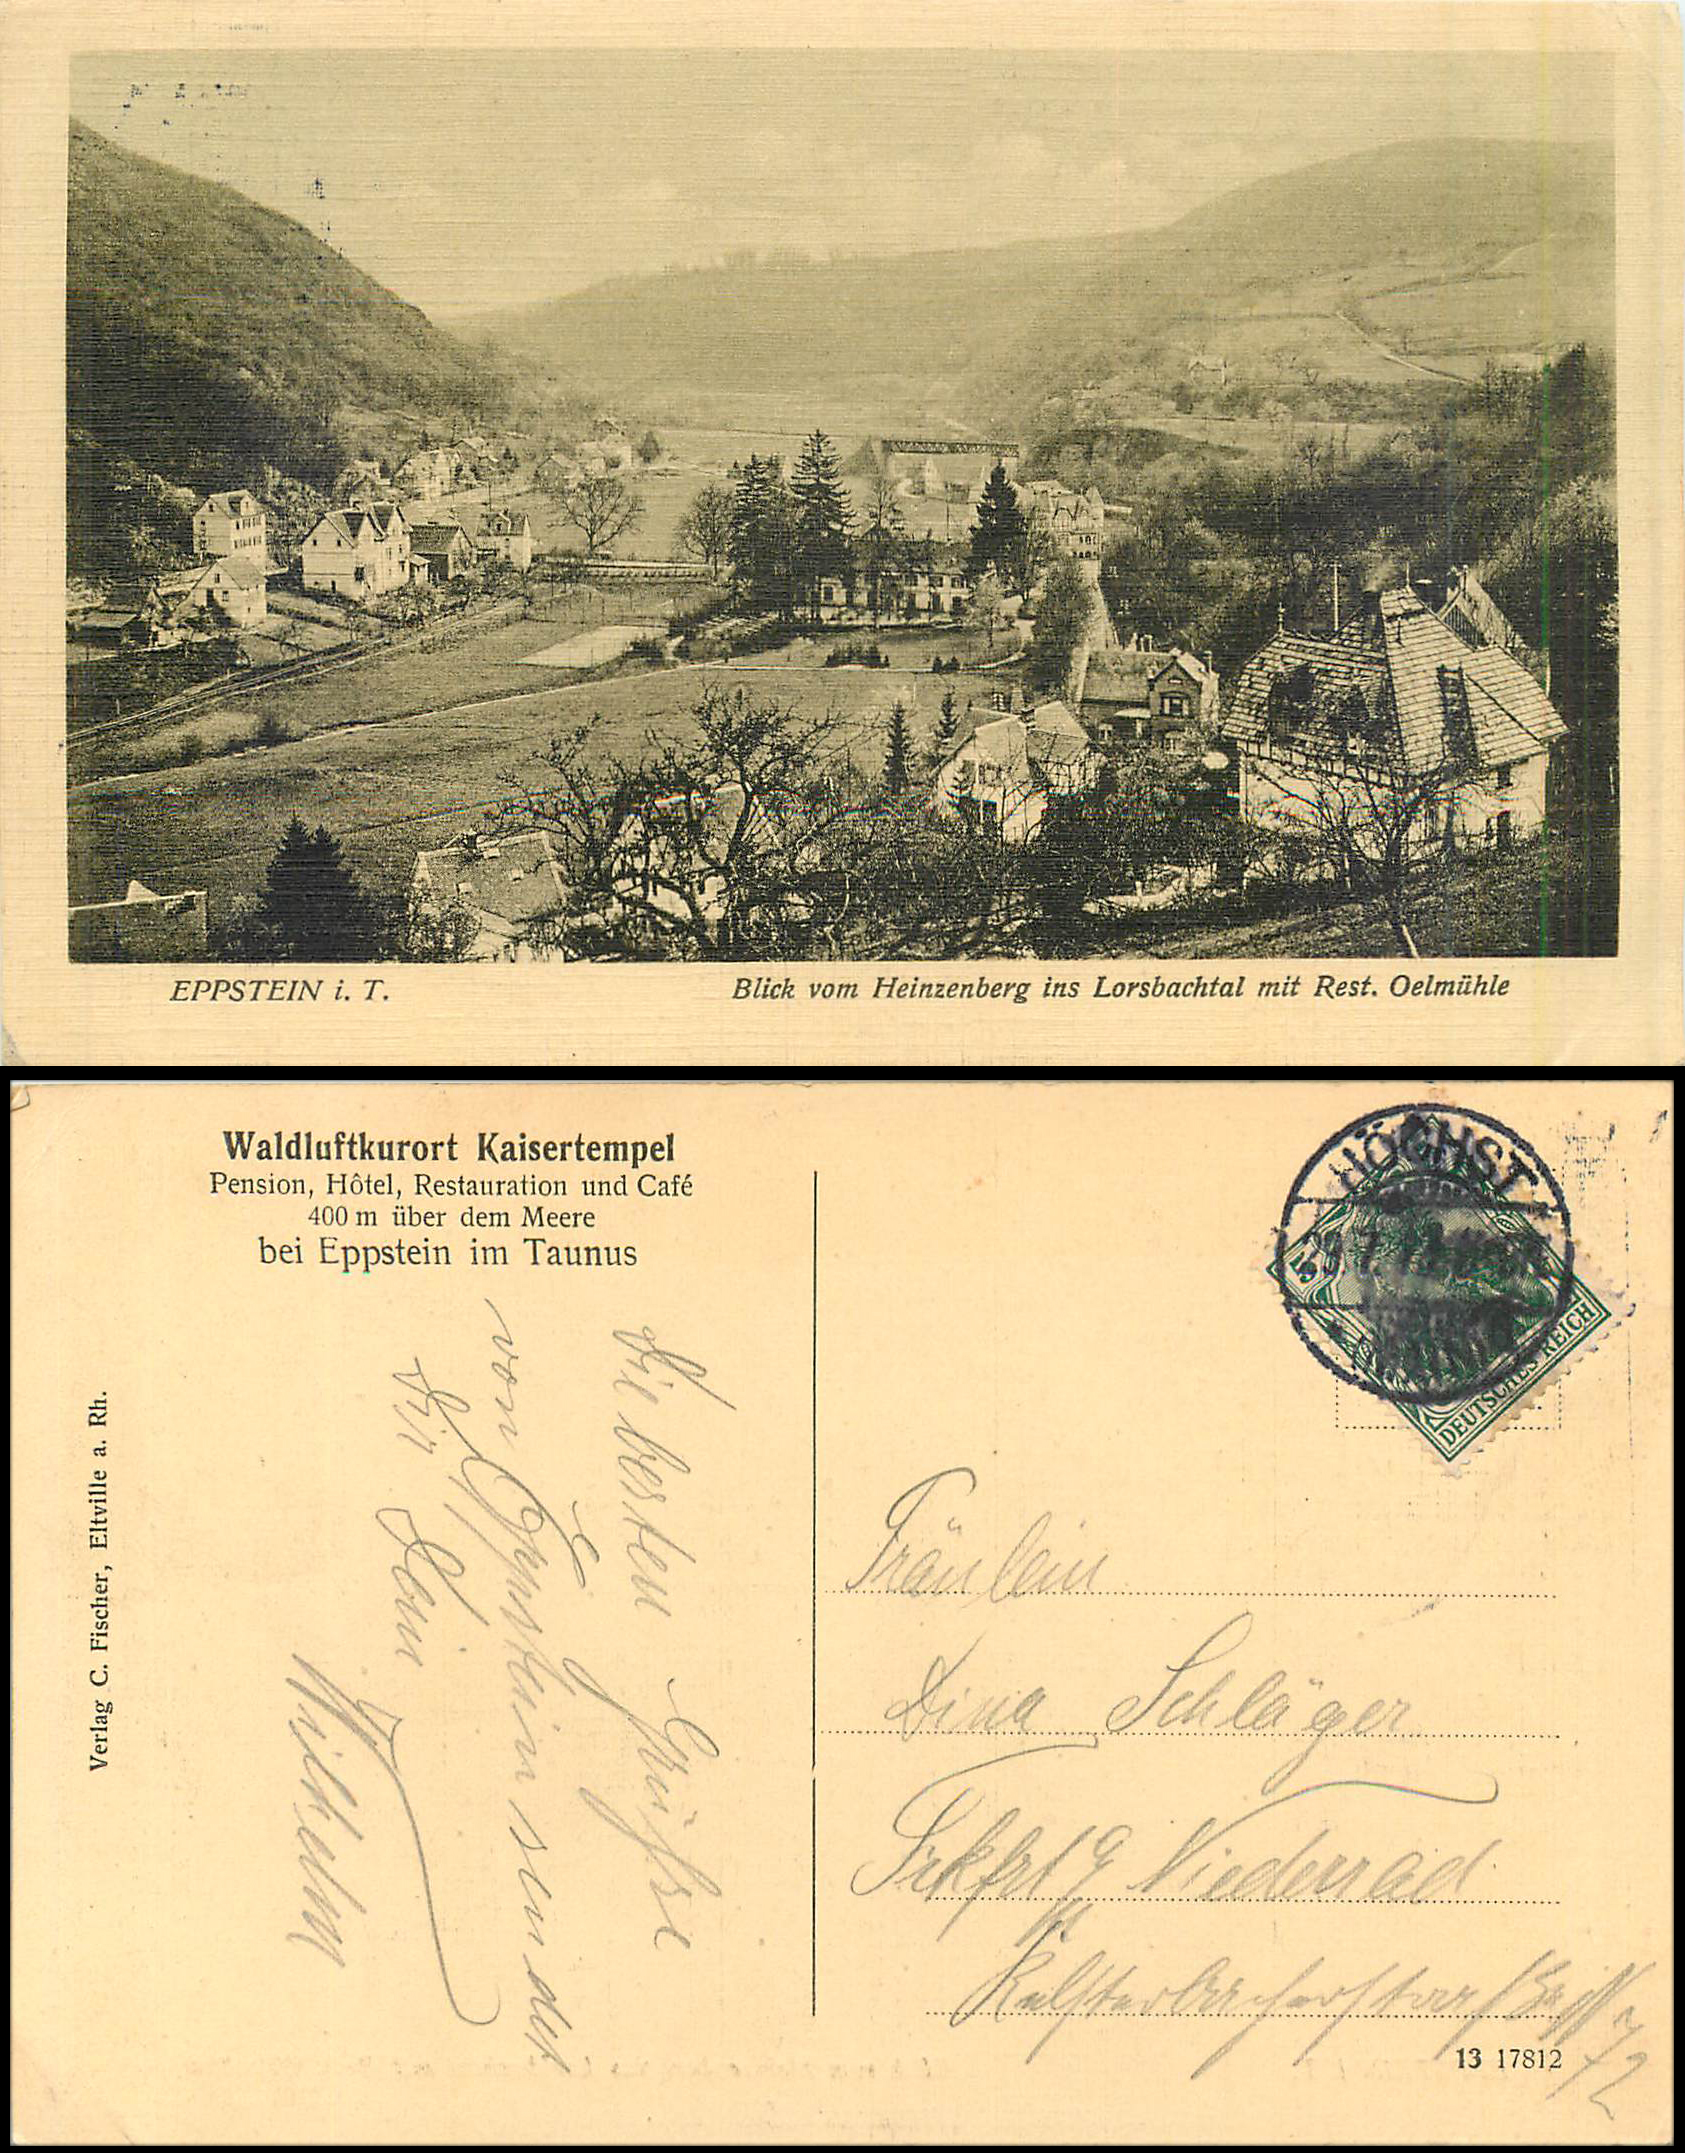 EPPSTEIN i. T.
Blick vom Heinzenberg ins Lorsbachtal mit Rest. Oelmühle
Waldluftkurort Kaisertempel
Pension, Hôtel, Restauration und Café
400 m über dem Meere
bei Eppstein im Taunus
Verlag C. Fischer, Eltville a. Rh.
Die besten Grüsse
von Eppstein sendet
Dir Dein
Wilhelm
HÖCHST
5
DEUTSCHES REICH
Fräulein
Dina Schläger
Frkfrt a Niederrad
13 17812